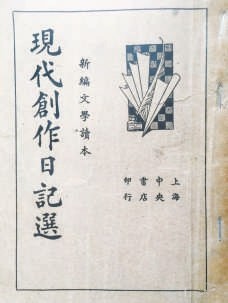 現代創作日記選
新編文學讀本
上海
中央
書店
印行